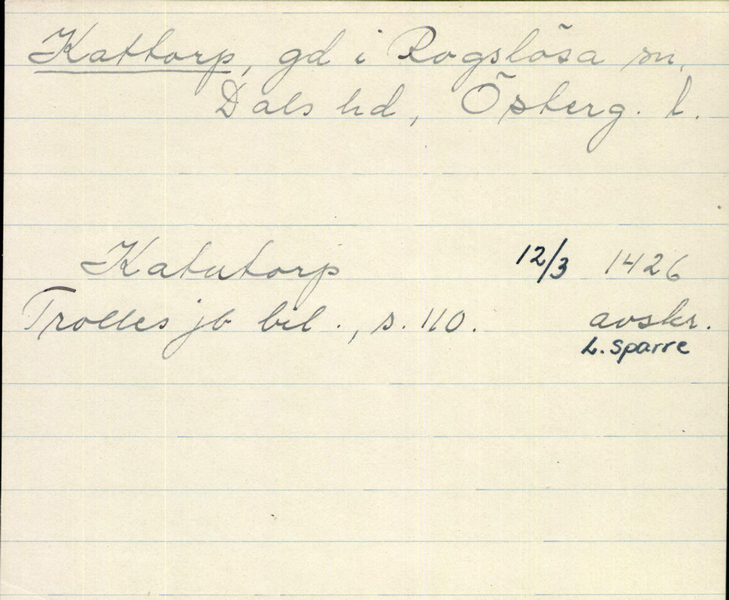 Kattorp, gd i Rogslösa sn,
Dals hd, Österg. l.
Katutorp 12/3 1426
Trolles jb bil., s. 110. avskr.
L. Sparre